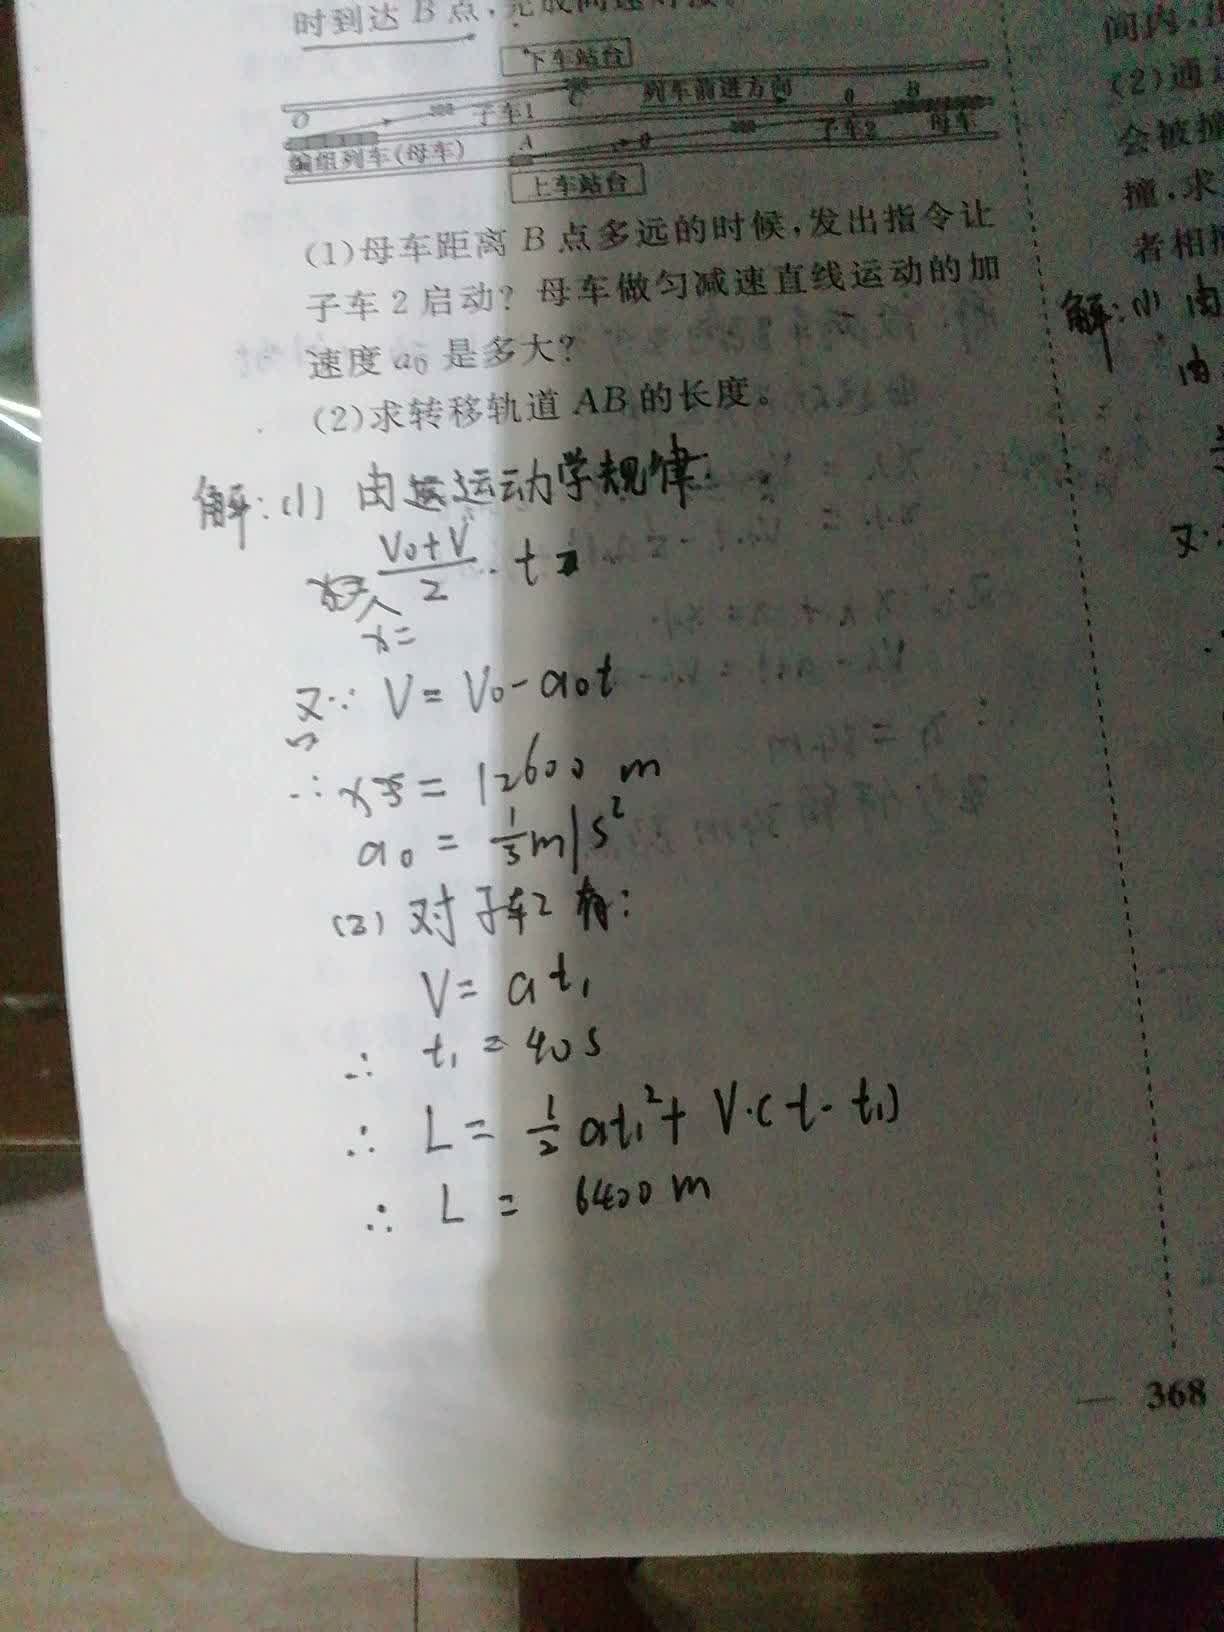 时到达B点,完成高速对接。
下车站台
O 子车1 C 列车前进方向 B
编组列车(母车) A 子车2 母车
上车站台
(1)母车距离B点多远的时候,发出指令让
子车2启动?母车做匀减速直线运动的加
速度a₀是多大?
(2)求转移轨道AB的长度。
解:(1) 由运动学规律:
x= (V₀+V)/2 · t
又∵ V= V₀-a₀t
∴ x = 12600 m
a₀ = 1/3 m/s²
(2) 对子车2有:
V= at₁
∴ t₁ = 40s
∴ L= 1/2 at₁² + V·(t-t₁)
∴ L = 6400 m
间内,
(2)通
会被撞
撞,求
者相
解:(1) 由
由
又
368